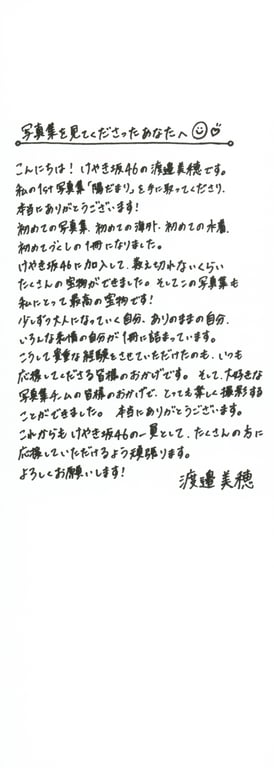 写真集を見てくださったあなたへ☺♡
こんにちは！けやき坂46の渡邉美穂です。
私の1st写真集「陽だまり」を手に取ってくださり、
本当にありがとうございます！
初めての写真集、初めての海外、初めての水着、
初めてづくしの1冊になりました。
けやき坂46に加入して、数え切れないくらい
たくさんの宝物ができました。そしてこの写真集も
私にとって最高の宝物です！
少しずつ大人になっていく自分、ありのままの自分、
いろんな表情の自分が1冊に詰まっています。
こうして貴重な経験をさせていただけたのも、いつも
応援してくださる皆様のおかげです。そして、大好きな
写真集チームの皆様のおかげで、とっても楽しく撮影する
ことができました。本当にありがとうございます。
これからもけやき坂46の一員として、たくさんの方に
応援していただけるよう頑張ります。
よろしくお願いします！
渡邉美穂